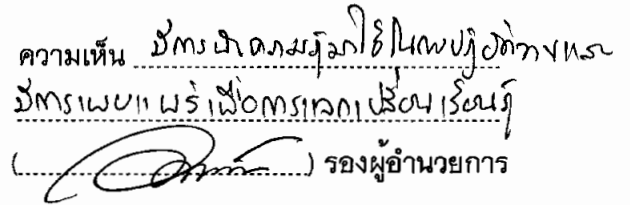 ความเห็น มีการนำความรู้มาใช้ในการปฏิบัติงานและ
มีการเผยแพร่เพื่อการแลกเปลี่ยนเรียนรู้
(....................) รองผู้อำนวยการ